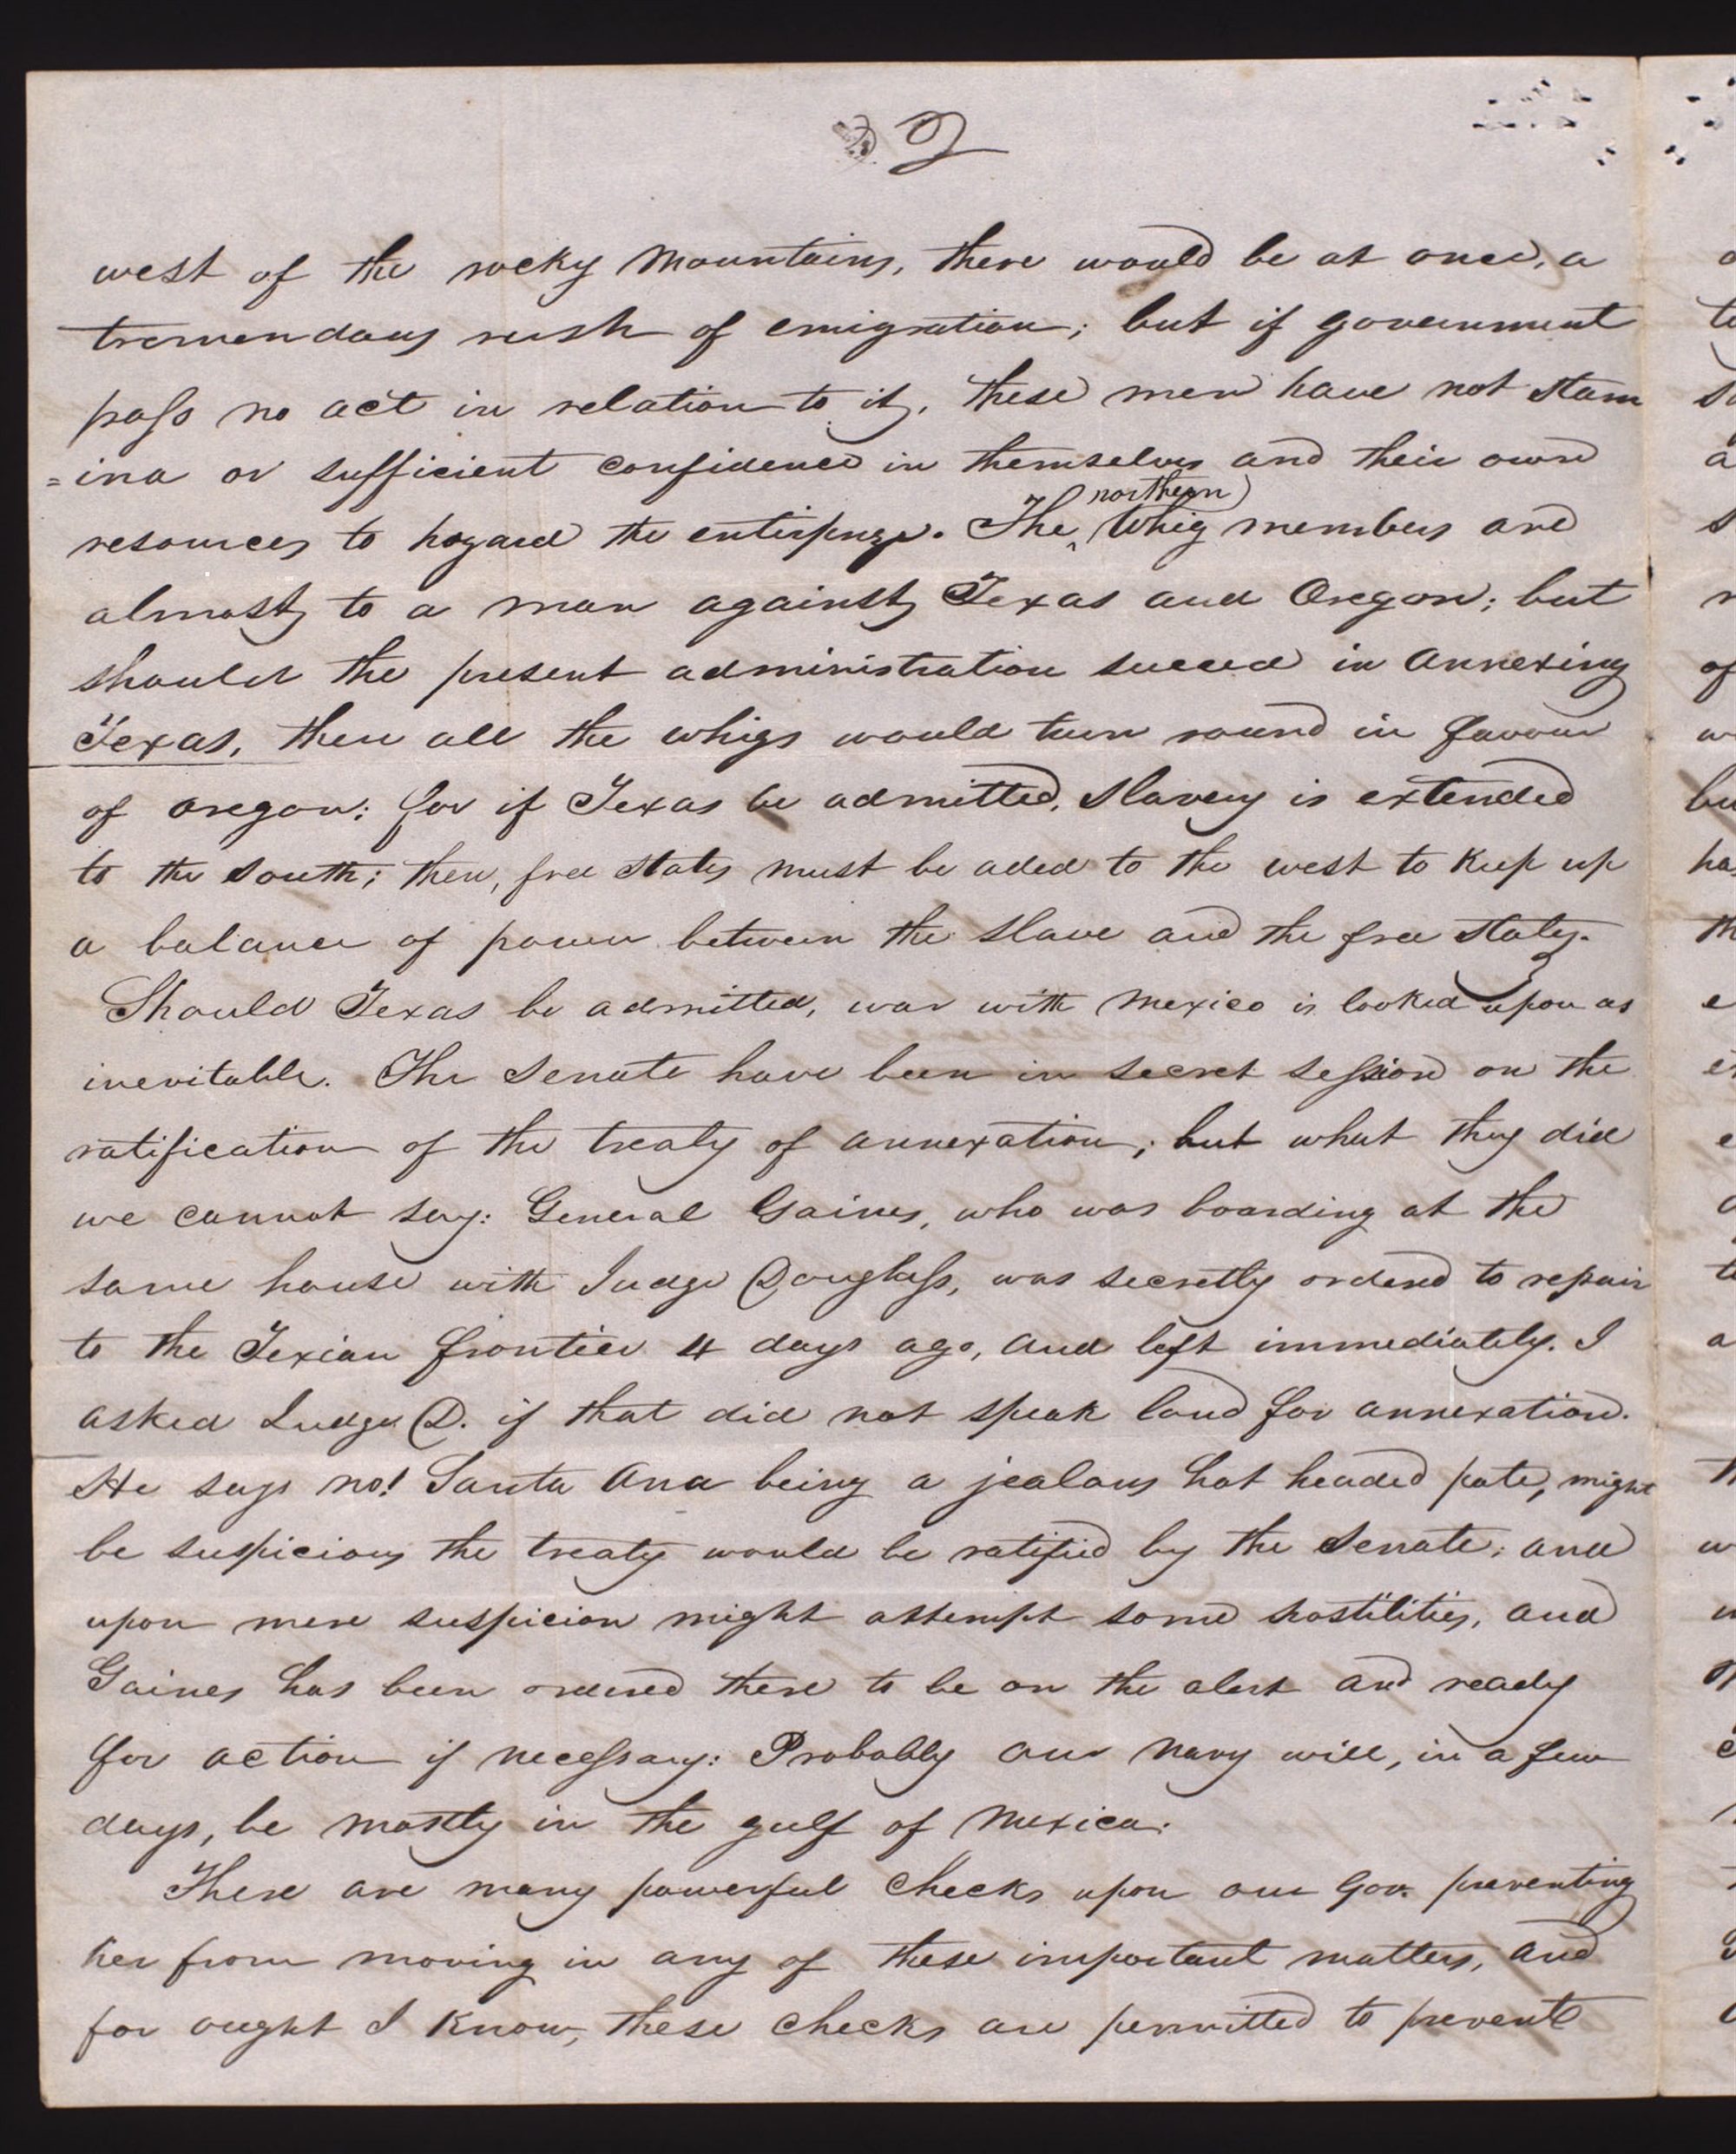 2
west of the rocky Mountains, there would be at once, a
tremendous rush of emigration; but if government
pass no act in relation to it, these men have not stam
=ina or sufficient confidence in themselves and their own
northern
resources to hazard the enterprize. The ^ Whig members are
almost, to a man against, Texas and Oregon; but
should the present administration succeed in annexing
Texas, then all the whigs would turn round in favour
of oregon: for if Texas be admitted, slavery is extended
to the south; then, free states must be aded to the west to keep up
a balance of power between the slave and the free states.
Should Texas be admitted, war with Mexico is looked upon as
inevitable. The Senate have been in secret session on the
ratification of the treaty of annexation; but what they did
we cannot say: General Gaines, who was boarding at the
same house with Judge Douglass, was secretly ordered to repair
to the Texian frontier 4 days ago, and left immediately. I
asked Judge D. if that did not speak loud for annexation.
He says no! Santa Ana being a jealous hot headed pate, might
be suspicious the treaty would be ratified by the Senate; and
upon mere suspicion might attempt some hostilities, and
Gaines has been ordered there to be on the alert and ready
for action if necessary: Probably our navy will, in a few
days, be mostly in the gulf of Mexico.
There are many powerful checks upon our Gov. preventing
her from moving in any of these important matters, and
for ought I know, these checks are permitted to prevent